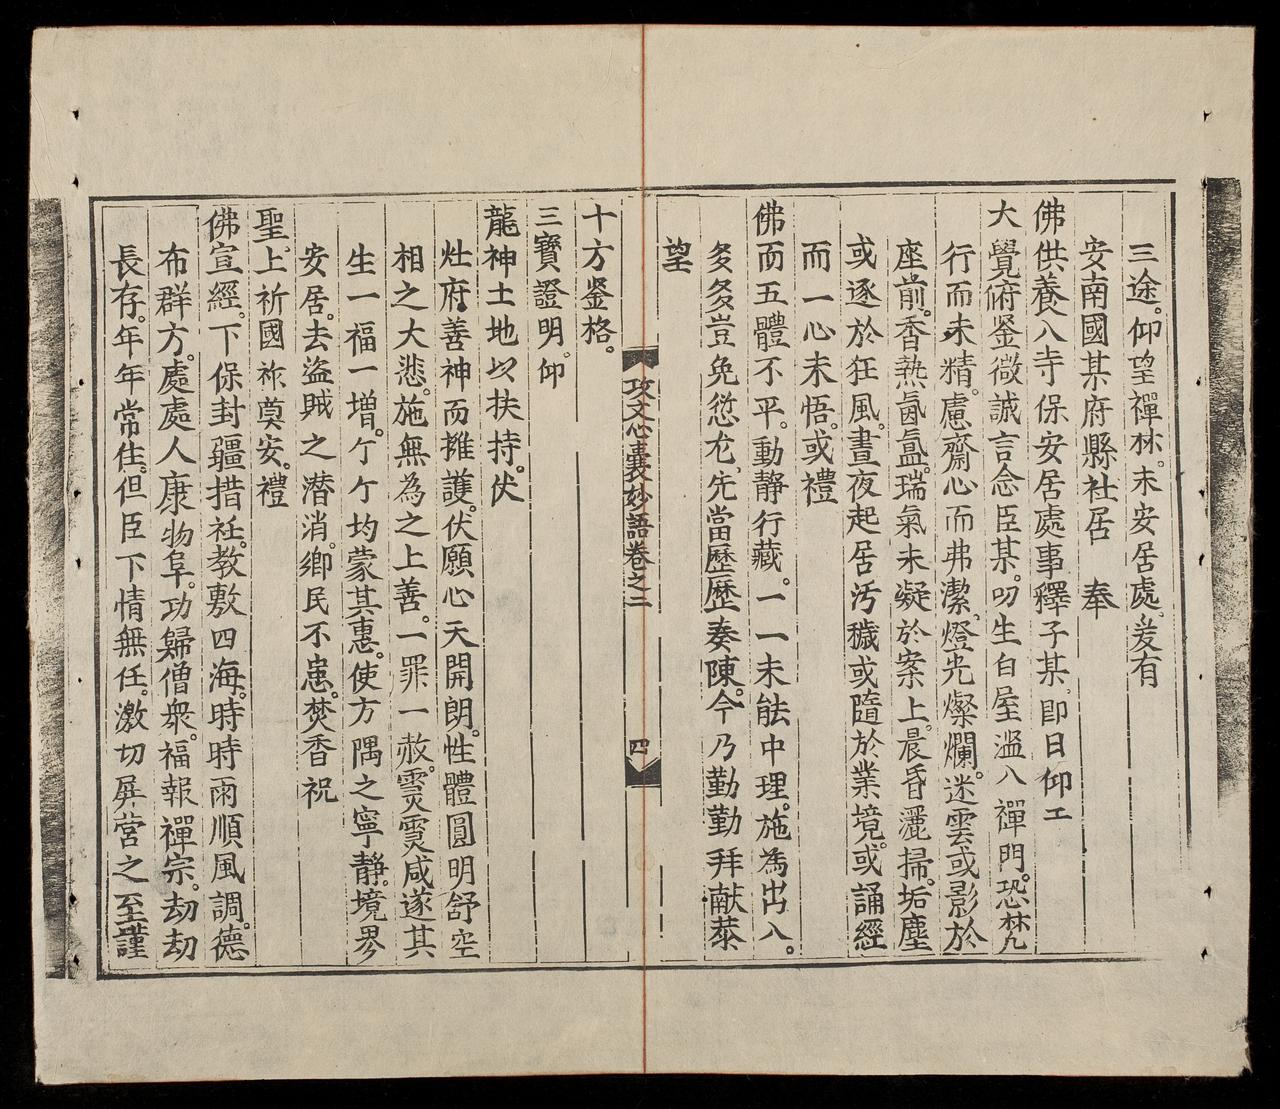 三途。仰望禪林。未安居處。爰有
安南國某府縣社居　奉
佛供養入寺保安居處事釋子某。卽日仰工
大覺俯鉴微誠言念臣某。叨生白屋濫入禪門。恐梵
行而未精。慮齋心而弗潔。燈光燦爛。迷雲或影於
座前。香熱氤氳。瑞氣未凝於案上。晨昏灑掃。垢塵
或逐於狂風。晝夜起居汚穢或隨於業境。或誦經
而一心未悟。或禮
佛而五體不平。動靜行藏。一一未能中理。施為出入。
多多豈免愆尤。先當歷歷奏陳。今乃勤勤拜献菜
望
攻文心囊妙語卷之二　四
十方鉴格。
三寶證明。仰
龍神土地以扶持。伏
灶府善神而擁護。伏願心天開朗。性體圓明舒空
相之大悲。施無為之上善。一罪一赦。霛霛咸遂其
生一福一增。个个均蒙其惠。使方隅之寧靜。境界
安居。去盜賊之潜消。鄉民不患。焚香祝
聖。上祈國祚奠安。禮
佛宣經。下保封疆措袵。教敷四海。時時雨順風調。德
布群方。處處人康物阜。功歸僧衆。福報禪宗。劫劫
長存。年年常住。但臣下情無任。激切屏营之至謹